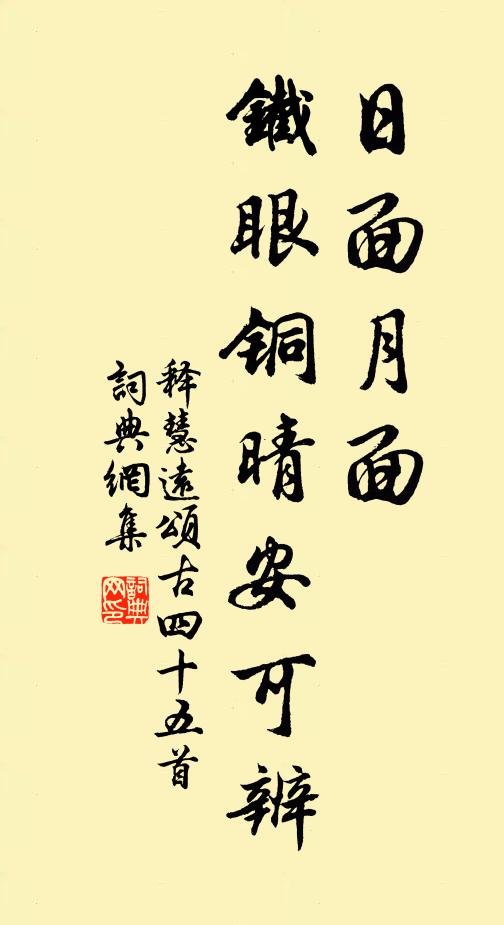 日面月面
鐵眼铜晴安可辨
释慧遠頌古四十五首
詞典網集
詞典网印